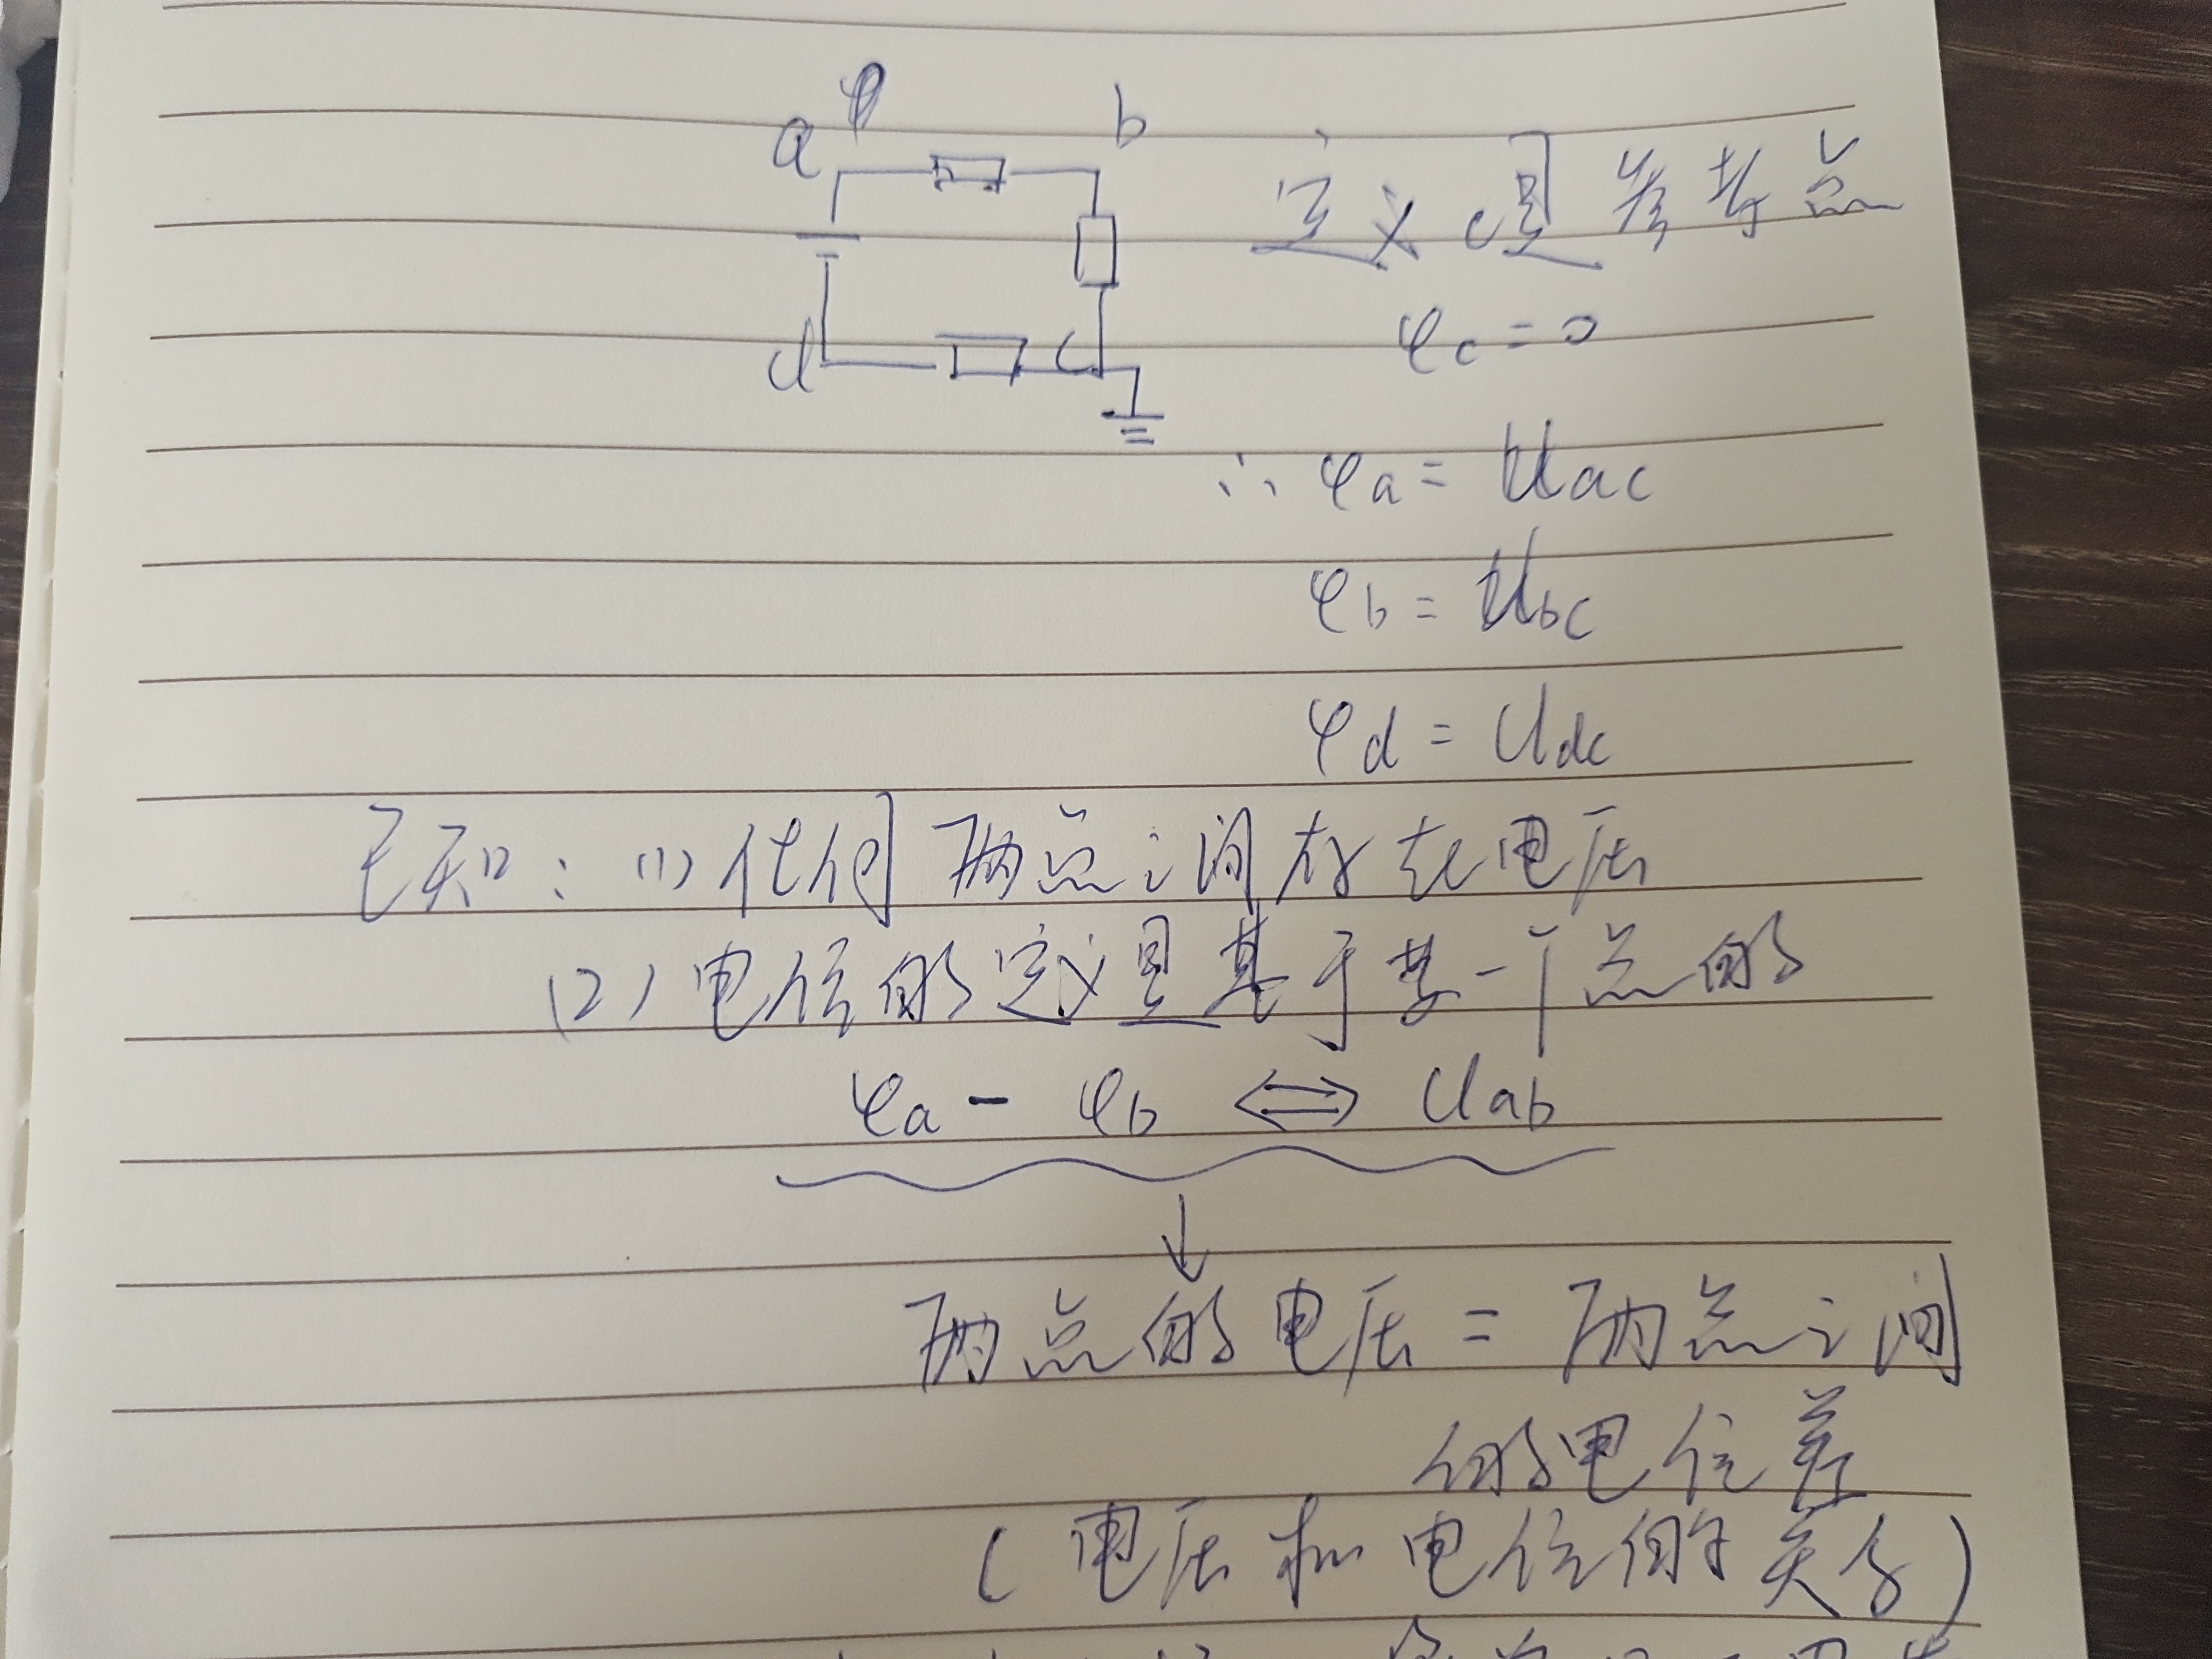 φ
a b
定义c是参考点
d c
φc=0
∴ φa= Uac
φb= Ubc
φd = Udc
已知:(1)任何两点之间存在电压
(2)电位的定义是基于某一个点的
φa - φb ⇔ Uab
↓
两点的电压 = 两点之间
的电位差
(电压和电位的关系)